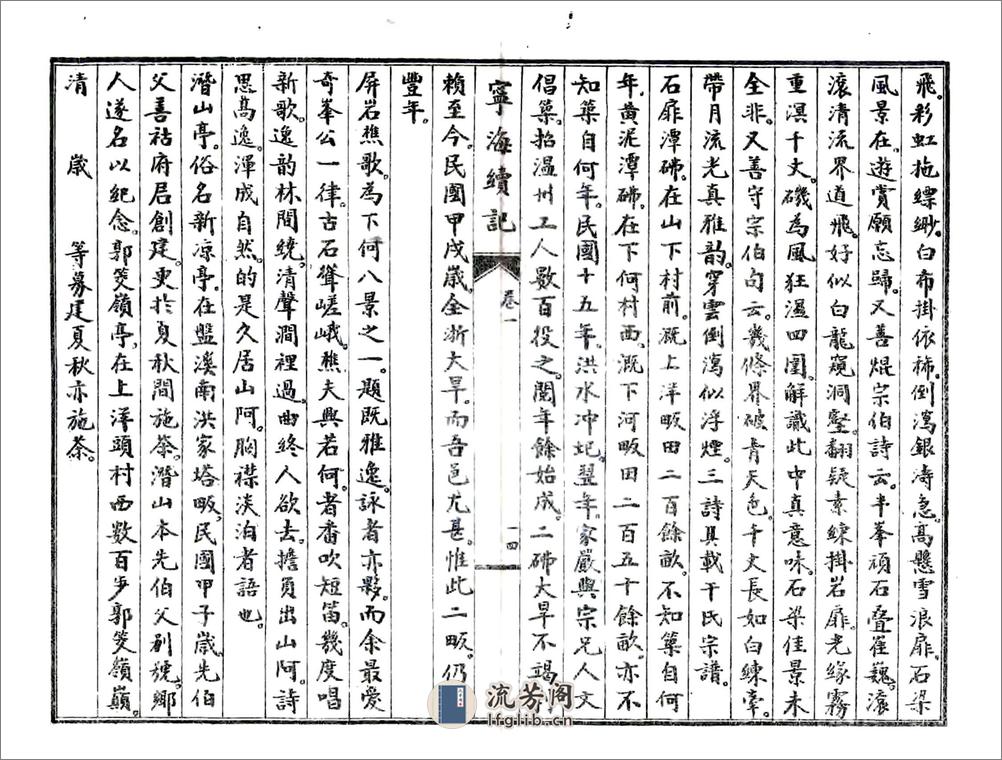 飛。彩虹拖縹緲。白布掛依稀。倒瀉銀濤急。高懸雪浪扉。石梁
風景在。遊賞願忘歸。又善焜宗伯詩云。半峯頑石疊崔巍。滾
滾清流界道飛。好似白龍窺洞壑。翻疑素練掛岩扉。光緣霧
重溟千丈。磯為風狂濕四圍。解識此中真意味。石梁佳景未
全非。又善守宗伯句云。幾條界破青天色。千丈長如白練牽。
帶月流光真雅韵。穿雲倒瀉似浮煙。三詩具載干氏宗譜。
石扉潭砩。在山下村前。溉上洋畈田二百餘畝。不知築自何
年。黃泥潭砩。在下何村西。溉下河畈田二百五十餘畝。亦不
知築自何年。民國十五年。洪水冲圮。翌年。家嚴與宗兄人文
倡築。招溫州工人數百役之。閱年餘始成。二砩大旱不竭。
寧海續記
卷一
一四
賴至今。民國甲戌歲。全浙大旱。而吾邑尤甚。惟此二畈。仍
豐年。
屏岩樵歌。為下何八景之一。題既雅逸。詠者亦夥。而余最愛
奇峯公一律。古石聳嵯峨。樵夫興若何。者番吹短笛。幾度唱
新歌。逸韵林間繞。清聲澗裡過。曲終人欲去。擔負出山阿。詩
思高逸。渾成自然。的是久居山阿。胸襟淡泊者語也。
潛山亭。俗名新凉亭。在盤溪南洪家塔畈。民國甲子歲。先伯
父善祜府君創建。更於夏秋間施茶。潛山本先伯父別號。鄉
人遂名以紀念。郭筊嶺亭。在上洋頭村西數百步郭筊嶺巔。
清 歲 等募建夏秋亦施茶。
流芳阁
lfglib.cn